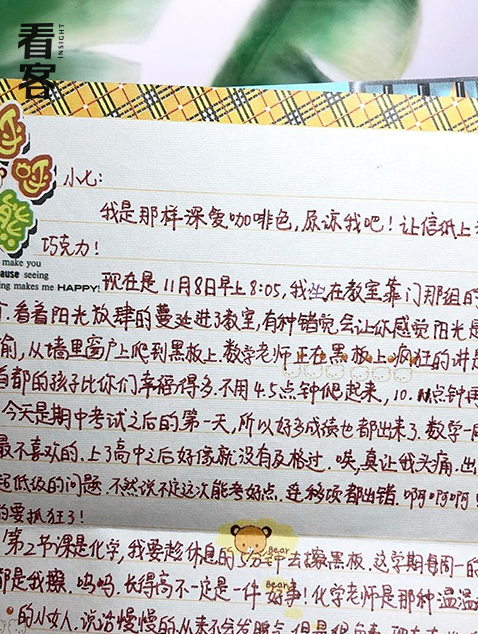 看客
INSIGHT
呼
呼
熊
小七:
我是那样深爱咖啡色,原谅我吧!让信纸上
巧克力!
make you
ause seeing
ing makes me HAPPY!
现在是11月8日早上8:05,我坐在教室靠门那组的
看着阳光放肆的蔓延进了教室,有种错觉会让你感觉阳光是
偷,从墙里窗户上爬到黑板上.数学老师正在黑板上疯狂的讲
首都的孩子比你们幸福得多.不用4.5点钟爬起来,10.11点钟再
今天是期中考试之后的第一天,所以好多成绩也都出来了.数学一
最不喜欢的.上了高中之后好像就没有及格过.唉,真让我头痛.出
起低级的问题.不然说不定这次能考好点.连移项都出错.啊啊啊
的要抓狂了!
Bear
第2节课是化学,我要趁休息的5分钟去擦黑板.这学期每周一的
Bear
都是我擦.呜呜.长得高不一定是一件好事!化学老师是那种温温
的小女人.说话慢慢的从来不会发脾气.但是很负责.